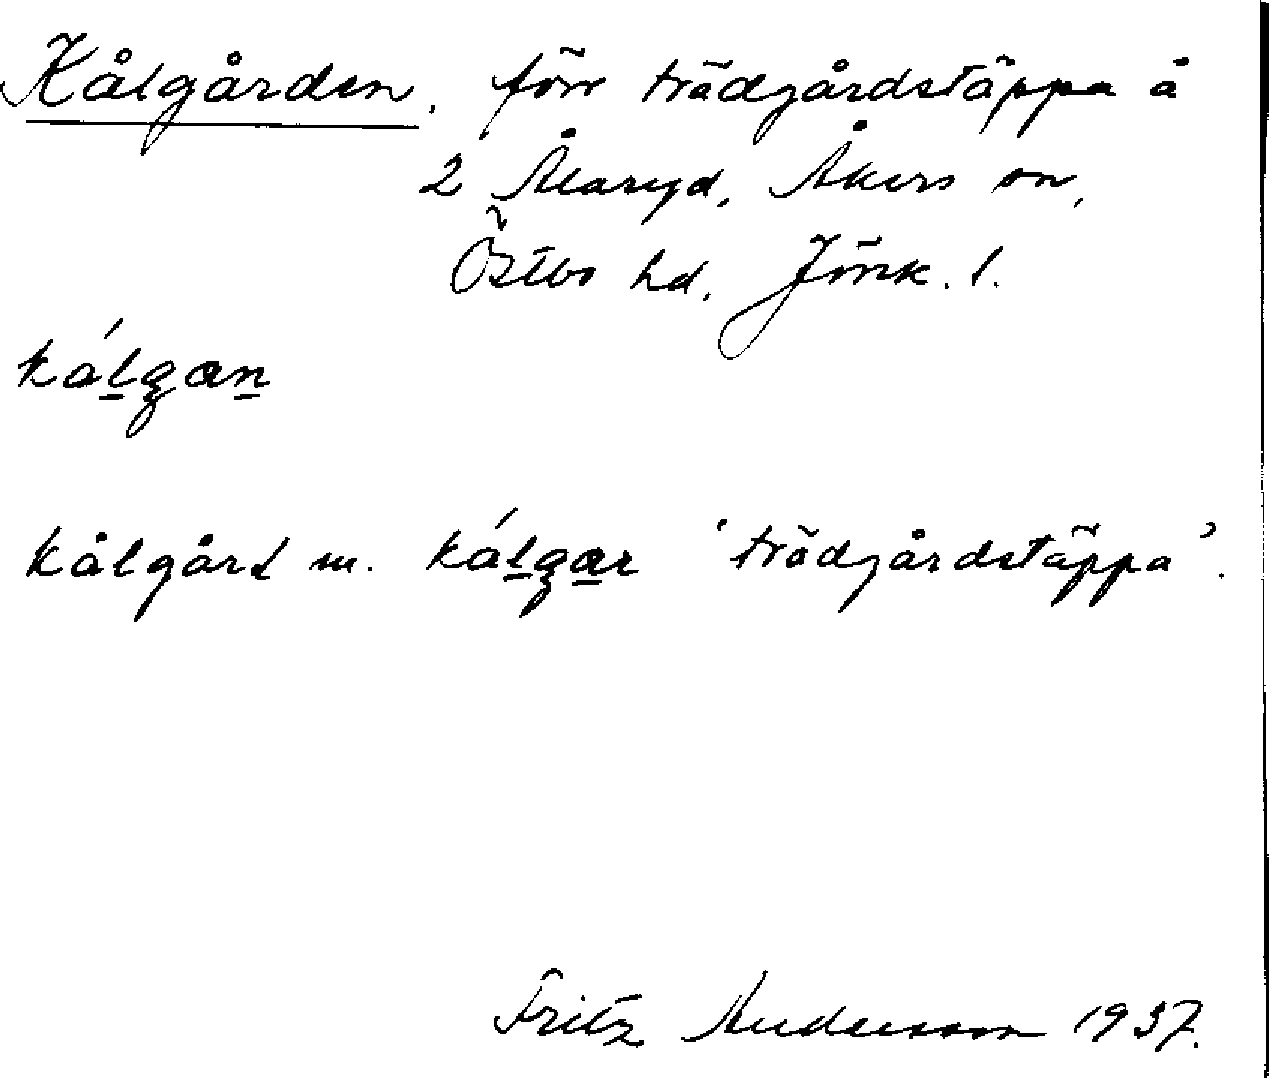 Kålgården, förr trädgårdstäppa å
2 Ålaryd, Åkers sn,
Östbo hd, Jönk. l.
kálgan
kålgård m. kálgar 'trädgårdstäppa'.
Fritz Andersson 1937.